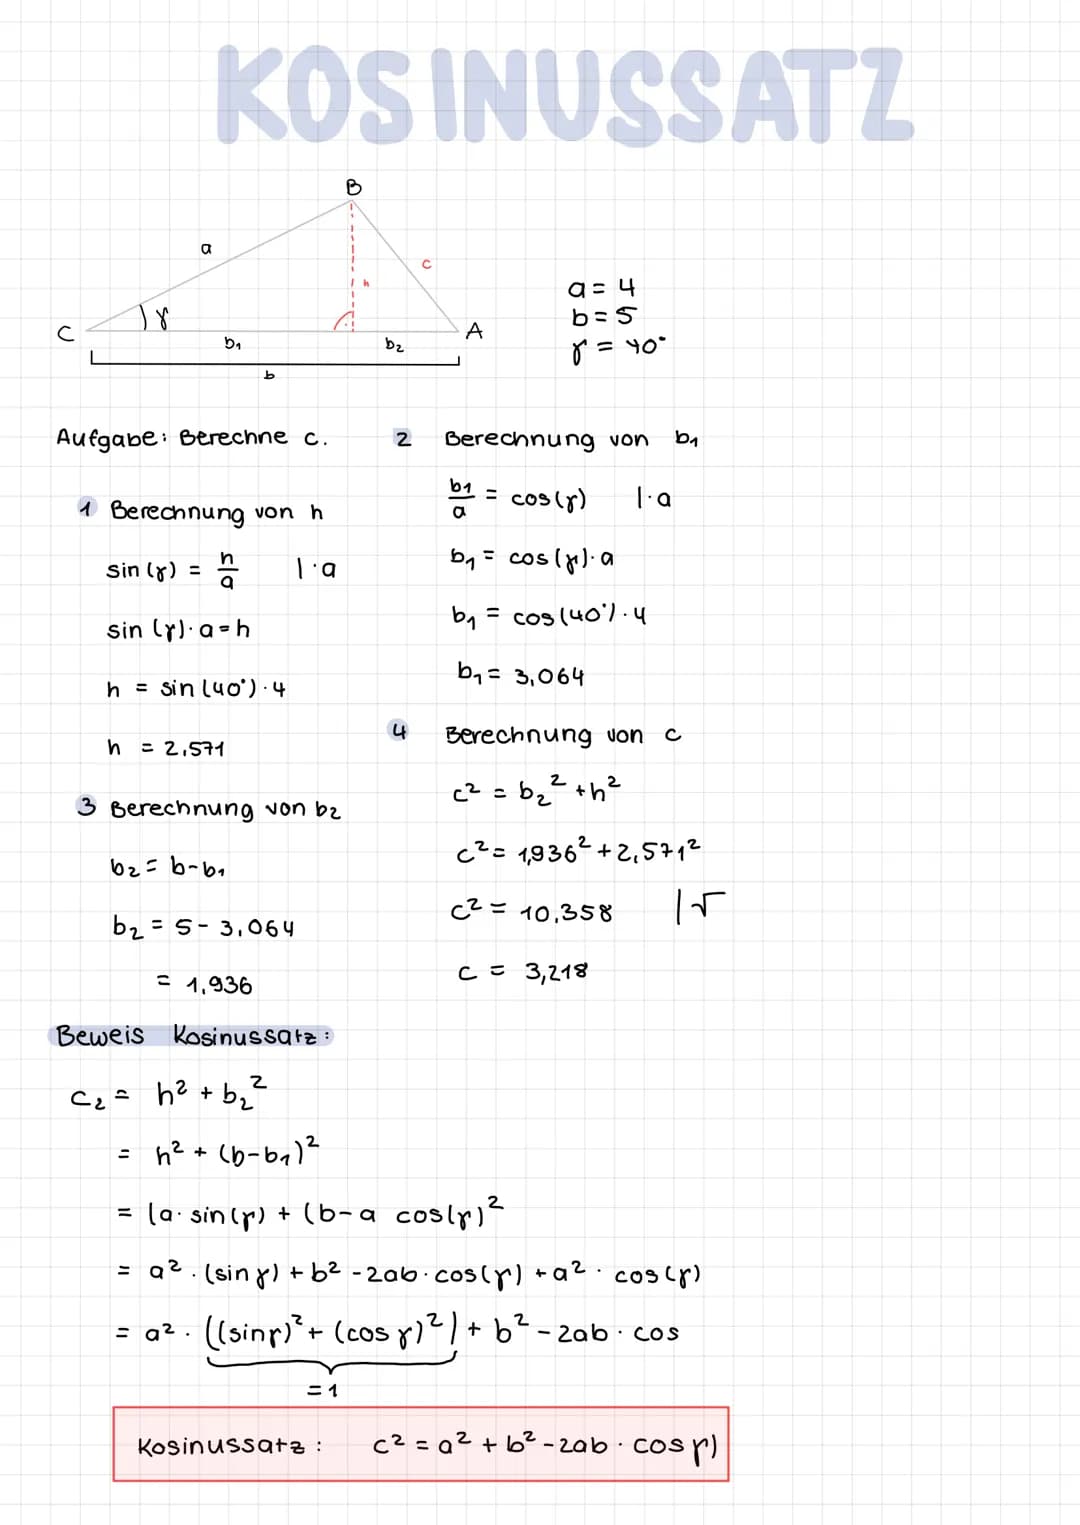 KOSINUSSATZ
B
a
c
h
γ
C
b₁
b₂
A
b
a = 4
b = 5
γ = 40°
Aufgabe: Berechne c.
1 Berechnung von h
sin (γ) = h/a | · a
sin (γ) · a = h
h = sin (40°) · 4
h = 2,571
2 Berechnung von b₁
b₁/a = cos(γ) | · a
b₁ = cos(γ) · a
b₁ = cos(40°) · 4
b₁ = 3,064
3 Berechnung von b₂
b₂ = b - b₁
b₂ = 5 - 3,064
= 1,936
4 Berechnung von c
c² = b₂² + h²
c² = 1,936² + 2,571²
c² = 10,358 | √
c = 3,218
Beweis Kosinussatz:
c₂ = h² + b₂²
= h² + (b-b₁)²
= (a · sin(γ) + (b-a cos(γ)²
= a² · (sin γ) + b² - 2ab · cos(γ) + a² · cos(γ)
= a² · ((sin γ)² + (cos γ)²) + b² - 2ab · cos
= 1
Kosinussatz: c² = a² + b² - 2ab · cos γ)